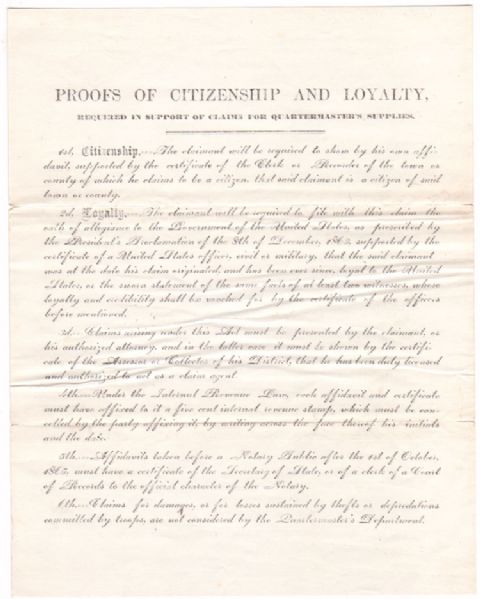 PROOFS OF CITIZENSHIP AND LOYALTY,
REQUIRED IN SUPPORT OF CLAIMS FOR QUARTERMASTER'S SUPPLIES.
1st. Citizenship.---The claimant will be required to show by his own affi-
davit, supported by the certificate of the Clerk or Recorder of the town or
county of which he claims to be a citizen, that said claimant is a citizen of said
town or county.
2d. Loyalty.---The claimant will be required to file with this claim the
oath of allegiance to the Government of the United States, as prescribed by
the President's Proclamation of the 8th of December, 1863, supported by the
certificate of a United States officer, civil or military, that the said claimant
was at the date his claim originated, and has been ever since, loyal to the United
States, or the sworn statement of the same facts of at least two witnesses, whose
loyalty and credibility shall be vouched for by the certificate of the officers
before mentioned.
3d.--Claims arising under this Act must be presented by the claimant, or
his authorized attorney, and in the latter case it must be shown by the certifi-
cate of the Assessor or Collector of his District, that he has been duly licensed
and authorized to act as a claim agent.
4th.--Under the Internal Revenue Law, each affidavit and certificate
must have affixed to it a five cent internal revenue stamp, which must be can-
celled by the party affixing it, by writing across the face thereof his initials
and the date.
5th.--Affidavits taken before a Notary Public after the 1st of October,
1865, must have a certificate of the Secretary of State, or of a clerk of a Court
of Records to the official character of the Notary.
6th.--Claims for damages, or for losses sustained by thefts or depredations
committed by troops, are not considered by the Quartermaster's Department.